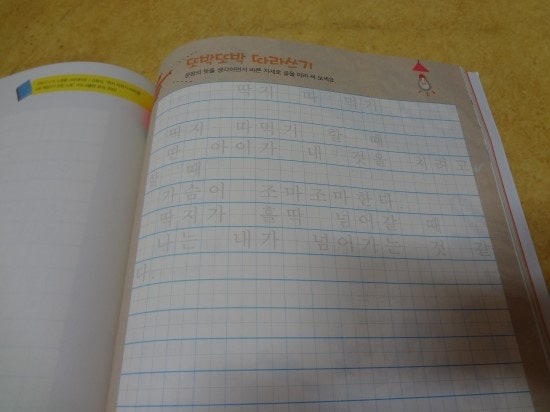 또박또박 따라쓰기
문장의 뜻을 생각하면서 바른 자세로 글을 따라 써 보세요.
딱지 따 먹기
딱지 따먹기 할 때
딴 아이가 내 것을 치려고
할 때
가슴이 조마조마한다.
딱지가 홀딱 넘어갈 때
나는 내가 넘어가는 것 같
다.